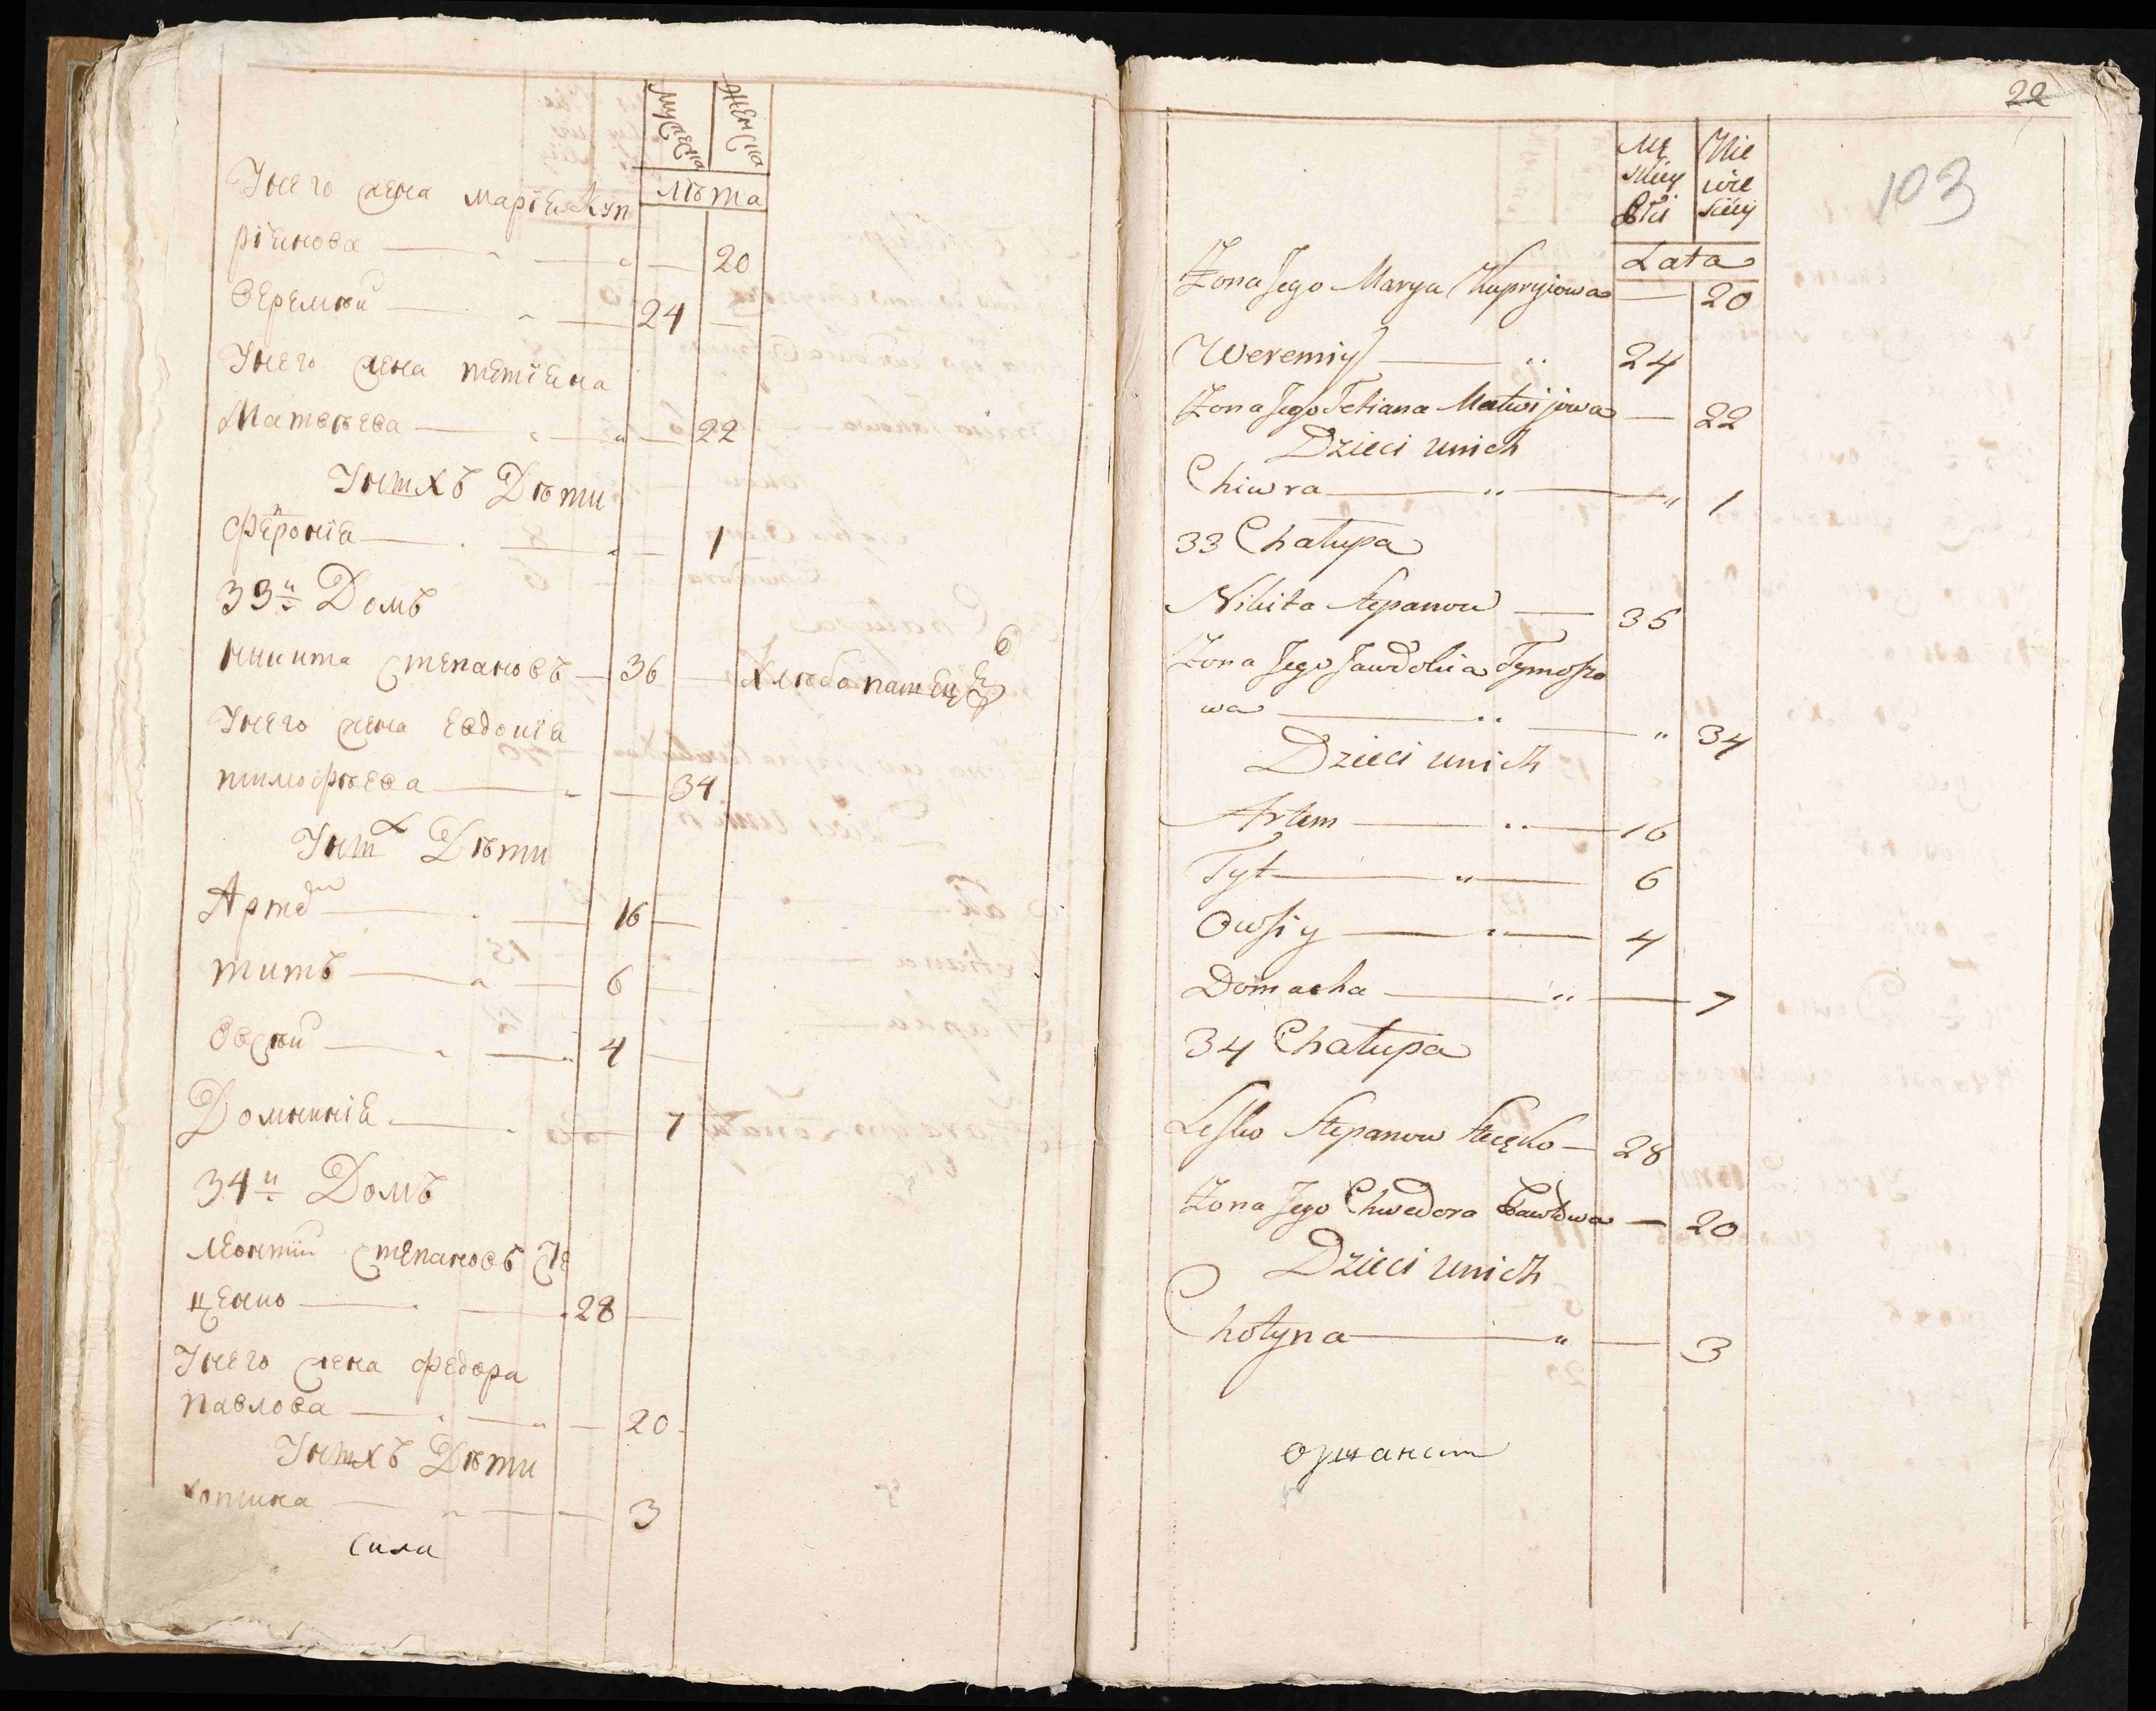 мужеска
женска
лѣта
У него жена Марїя Куп
рїянова 20
Веремѣй 24
У него жена тетїяна
Матвѣева 22
У нихъ Дѣти
Феѵронїя 1
33й Домъ
никита Степановъ 36 Хлѣбопашецъ
У него жена Евдокїя
тимофѣева 34
У них Дѣти
Артем 16
титъ 6
Овсѣй 4
Домникїя 7
34й Домъ
Леонтїй Степановъ Сте
ценко 28
У него жена федора
павлова 20
У нихъ Дѣти
хотина 3
Сили
22
103
Mę
skiey
płci
Nie
wie
sciey
Lata
Żona Jego Marya Kupryiowa 20
Weremiy 24
Żona Jego Tetiana Matwijowa 22
Dzieci unich
Chiwra 1
33 Chałupa
Nikita Stepanow 36
Żona Jego Jawdokia Tymosze
wa 34
Dzieci unich
Artem 16
Tyt 6
Owsiy 4
Domacha 7
34 Chałupa
Lesko Stepanow Stecęko 28
Żona Jego Chwedora Pawłowa 20
Dzieci unich
Chotyna 3